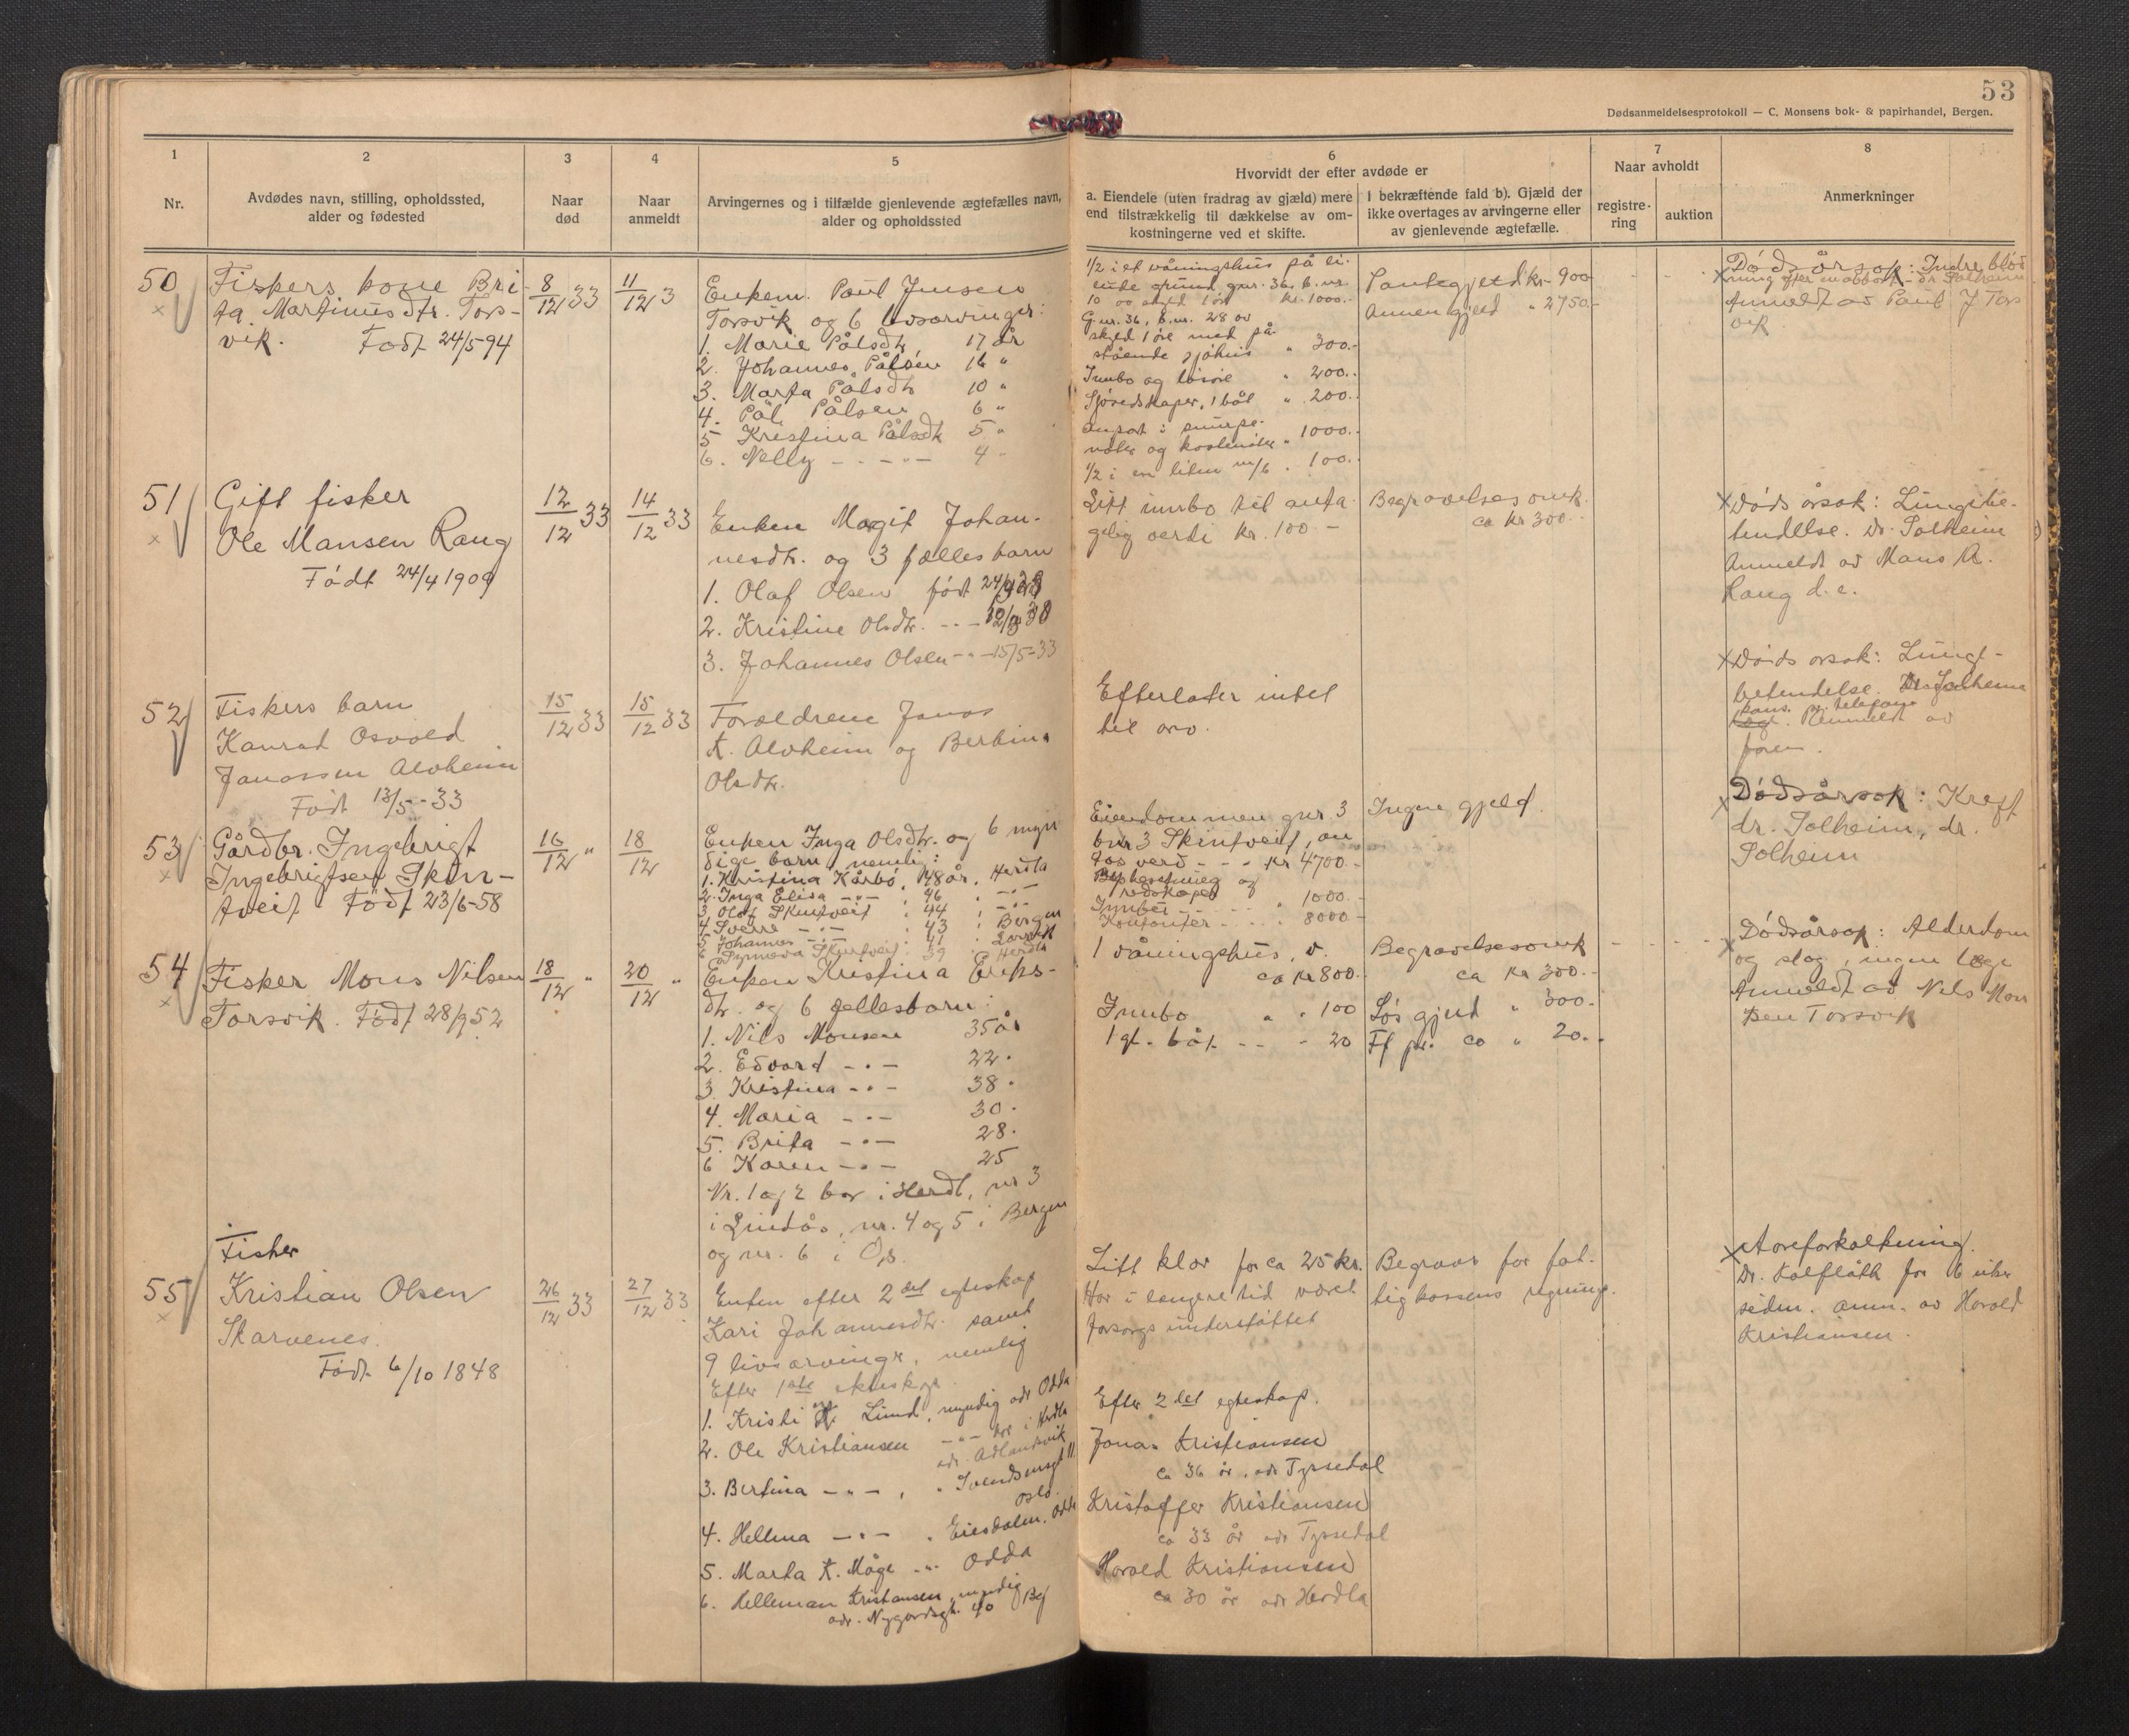 53
Dødsanmeldelsesprotokoll — C. Monsens bok- & papirhandel, Bergen.
1
Nr.
2
Avdødes navn, stilling, opholdssted,
alder og fødested
3
Naar
død
4
Naar
anmeldt
5
Arvingernes og i tilfælde gjenlevende ægtefælles navn,
alder og opholdssted
6
Hvorvidt der efter avdøde er
a. Eiendele (uten fradrag av gjæld) mere
end tilstrækkelig til dækkelse av om-
kostningerne ved et skifte.
I bekræftende fald b). Gjæld der
ikke overtages av arvingerne eller
av gjenlevende ægtefælle.
7
Naar avholdt
registre-
ring
auktion
8
Anmerkninger
50
Fiskers kone Bri-
ta Martinusdtr. Tors-
vik. Født 24/5 94
8/12 33
11/12 3
Enkem. Paul Jensen
Torsvik og 6 livsarvinger:
1. Marie Pålsdtr 17 år
2. Johannes Pålsen 16 "
3. Marta Pålsdtr 10 "
4. Pål Pålsen 6 "
5 Kristina Pålsdtr 5 "
6. Nelly - . - " - 4 "
1/2 i et våningshus på lei-
ende grund, gnr. 36, b.nr.
10 av skyld 1 øre kr. 1000.-
G.nr. 36, b.nr. 28 av
skyld 1 øre med på-
stående sjøhus " 300.-
Innbo og løsøre " 200.-
Sjøredskaper, 1 båt " 200.-
anpart i snurpe-
nøter og kostenøter " 1000.-
1/2 i en liten m/b . 100.-
Pantegjeld kr. 900.-
Annen gjeld " 2750.-
x Dødsårsak: Indre blød
ning efter en abort - dr Solheim
Anmeldt av Paul J Tors
vik
51
Gift fisker
Ole Mansen Rong
Født 24/4 1909
12/12 33
14/12 33
Enken Magit Johan-
nesdtr. og 3 fælles barn
1. Olaf Olsen født 24/9 28
2. Kristine Olsdtr. - " -
3. Johannes Olsen - " - 15/5-33
Litt innbo til anta-
gelig verdi kr. 100.-
Begravelsesomk.
ca kr 300.-
x Døds årsak: Lungebe-
tendelse. Dr. Solheim
Anmeldt av Mans A.
Rong d.e.
52
Fiskers barn
Konrad Osvald
Janassen Alvheim
Født 13/5-33
15/12 33
15/12 33
Foreldrene Janas
K. Alvheim og Berbina
Olsdtr.
Efterlater intet
til arv.
x Døds årsak: Lunge-
betendelse. Dr. Solheim
kons. pr. telefon
Anmeldt av
faren.
53
Gårdbr. Ingebrigt
Ingebrigtsen Skin-
tveit Født 23/6-58
16/12 "
18/12
Enken Inga Olsdtr. og 6 myn
dige barn, nemlig:
1. Kristina Kårbø, 48 år, Herdla
2. Inga Elisa - " - 46 " - " -
3. Olaf Skintveit : 44 : - " -
4 Sverre - " - : 43 : Bergen
5 Johannes - " - : 41 :
6 Skintveit : 39 : Herdla
Eiendommen gnr. 3
bnr 3 Skintveit, an
tas verd - - - kr 4700.-
Bphesetning og
redskaper
Innbo - - - 1000.-
Kontanter - - - 8000.-
Ingen gjeld.
x Dødsårsak: Kreft
dr. Solheim, dr.
Solheim
54
Fisker Mons Nilsen
Torsvik. Født 28/9 52
18/12 "
20/12 "
Enken Kristina Eriks-
dtr. og 6 fellesbarn:
1. Nils Monsen 35 år
2. Edvard - " - 22 .
3. Kristina - " - 38 .
4. Maria - " - 30 .
5. Brita - " - 28 .
6 Karen - " - 25
Nr. 1 og 2 bor i Herdl, nr 3
i Lindås, nr. 4 og 5 i Bergen
og nr. 6 i Os.
1 våningshus, v.
ca kr 800.-
Innbo " " 100
1 gl. båt - - - 20
Begravelsesomk
ca kr 300.-
Løs gjeld " 300.-
Ff pr. ca " 20.-
x Dødsårsak: Alderdom
og slag, ingen læge
Anmeldt av Nils Mon
sen Torsvik
55
Fisker
Kristian Olsen
Skarvenes.
Født 6/10 1848
26/12 33
27/12 33
Enken efter 2det egteskap
Kari Johannesdtr. samt
9 livsarvinger, nemlig
Efter 1ste ekteskap.
1. Kristi K. Lund, myndig adr Odda
2. Ole Kristiansen - " - bor i Herdla
adr. Adlandsvik
3. Bertina - " - , " Svendsensgt 11
Oslo.
4. Hellma - " - . Eiesdalen, Odda
5. Marta K. Måge - " - Odda
6. Helleman Kristiansen, myndig
adr. Nygårdsgt. 40 Bg
Litt klær for ca 25 kr.
Har i lengere tid været
forsorgsunderstøttet
Begraves for fat-
tigkassens regning.
Efter 2det egteskap.
Jonas Kristiansen
ca 36 år, adr Tyssedal
Kristoffer Kristiansen
ca 33 år adr Tyssedal
Harald Kristiansen
ca 30 år adr Herdla
x Åreforkalkning.
Dr. Kalflåth for 6 uker
siden. Anm. av Harald
Kristiansen.